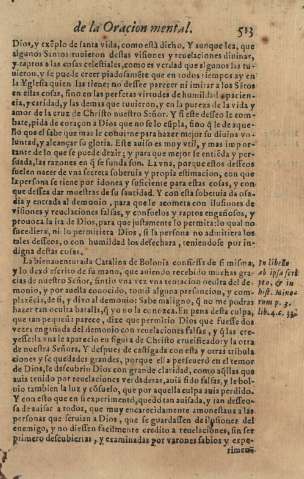 de la Oracion mental. 513
Dios, y exẽplo de santa vida, como està dicho. Y aunque lea, que
algunos Santos tuuieron destas visiones y reuelaciones diuinas,
y raptos a las cosas celestiales, como es verdad que algunos las tu-
uieron, y se puede creer piadosamẽte que en todos tiempos ay en
la Yglesia quien las tiene; no dessee parecer ni imitar a los Stros
en estas cosas, sino en las perfetas virtudes de humildad, pacien-
cia, y caridad, y las demas que tuuieron, y en la pureza de la vida y
amor de la cruz de Christo nuestro Señor. Y si este desseo le com-
bate, pida de coraçon a Dios que no se lo cũpla, sino q̃ le de aque-
llo que el sabe que mas le conuiene para hazer mejor su diuina vo-
luntad, y alcançar su gloria. Este auiso es muy vtil, y mas impor-
tante de lo que se puede dezir; y para que mejor se entiẽda y per-
suada, las razones en q̃ se funda son. La vna, porque estos desseos
suelen nacer de vna secreta soberuia y propia estimacion, con que
la persona se tiene por idonea y suficiente para estas cosas, y con
que dessea dar muestras de su santidad. Y con esta soberuia da osa-
dia y entrada al demonio, para que le acometa con ilusiones de
visiones y reuelaciones falsas, y consuelos y raptos engañosos, y
prouoca la ira de Dios, para que justamente lo permita: lo qual no
sucediera, ni lo permitiera Dios, si la persona no admitiera los
tales desseos, o con humildad los desechara, teniendose por in-
digna destas cosas.
La bienauenturada Catalina de Bolonia confiessa de si misma,
y lo dexò escrito de su mano, que auiendo recebido muchas gra-
cias de nuestro Señor, sintio vna vez vna tentacion oculta del de-
monio, y por auerla conocido, tomò alguna presuncion, y com-
plazẽcia, de si, y dixo al demonio: Sabe maligno, q̃ no me podras
hazer tan oculta batalla, q̃ yo no la conozca. En pena desta culpa,
que tan pequeña parece, dize que permitio Dios que fuesse dos
vezes engañada del demonio con reuelaciones falsas, y q̃ las cre-
yesse: la vna le aparecio en figura de Christo crucificado, y la otra
de nuestra Señora. Y despues de castigada con esta y otras tribula
ciones y sequedades grandes, porque ella perseuerò en el temor
de Dios, le descubrio Dios con grande claridad, como aq̃llas que
auia tenido por reuelaciones verdaderas, auiã sido falsas, y le bol-
uio tambien la luz y cõsuelo, que por aquella culpa auia perdido.
Y con esto que en si experimentò, quedò tan auisada, y tan desseo-
sa de auisar a todos, que muy encarecidamente amonestaua a las
personas que seruian a Dios, que se guardassen de ilusiones del
enemigo, y no diessen facilmente credito a reuelaciones, sin ser
primero descubiertas, y examinadas por varones sabios y expe-
rimen-
In libello
ab ipsa scri
to, & in
hist. Mino-
rum p. 3.
lib. 4. c. 33.